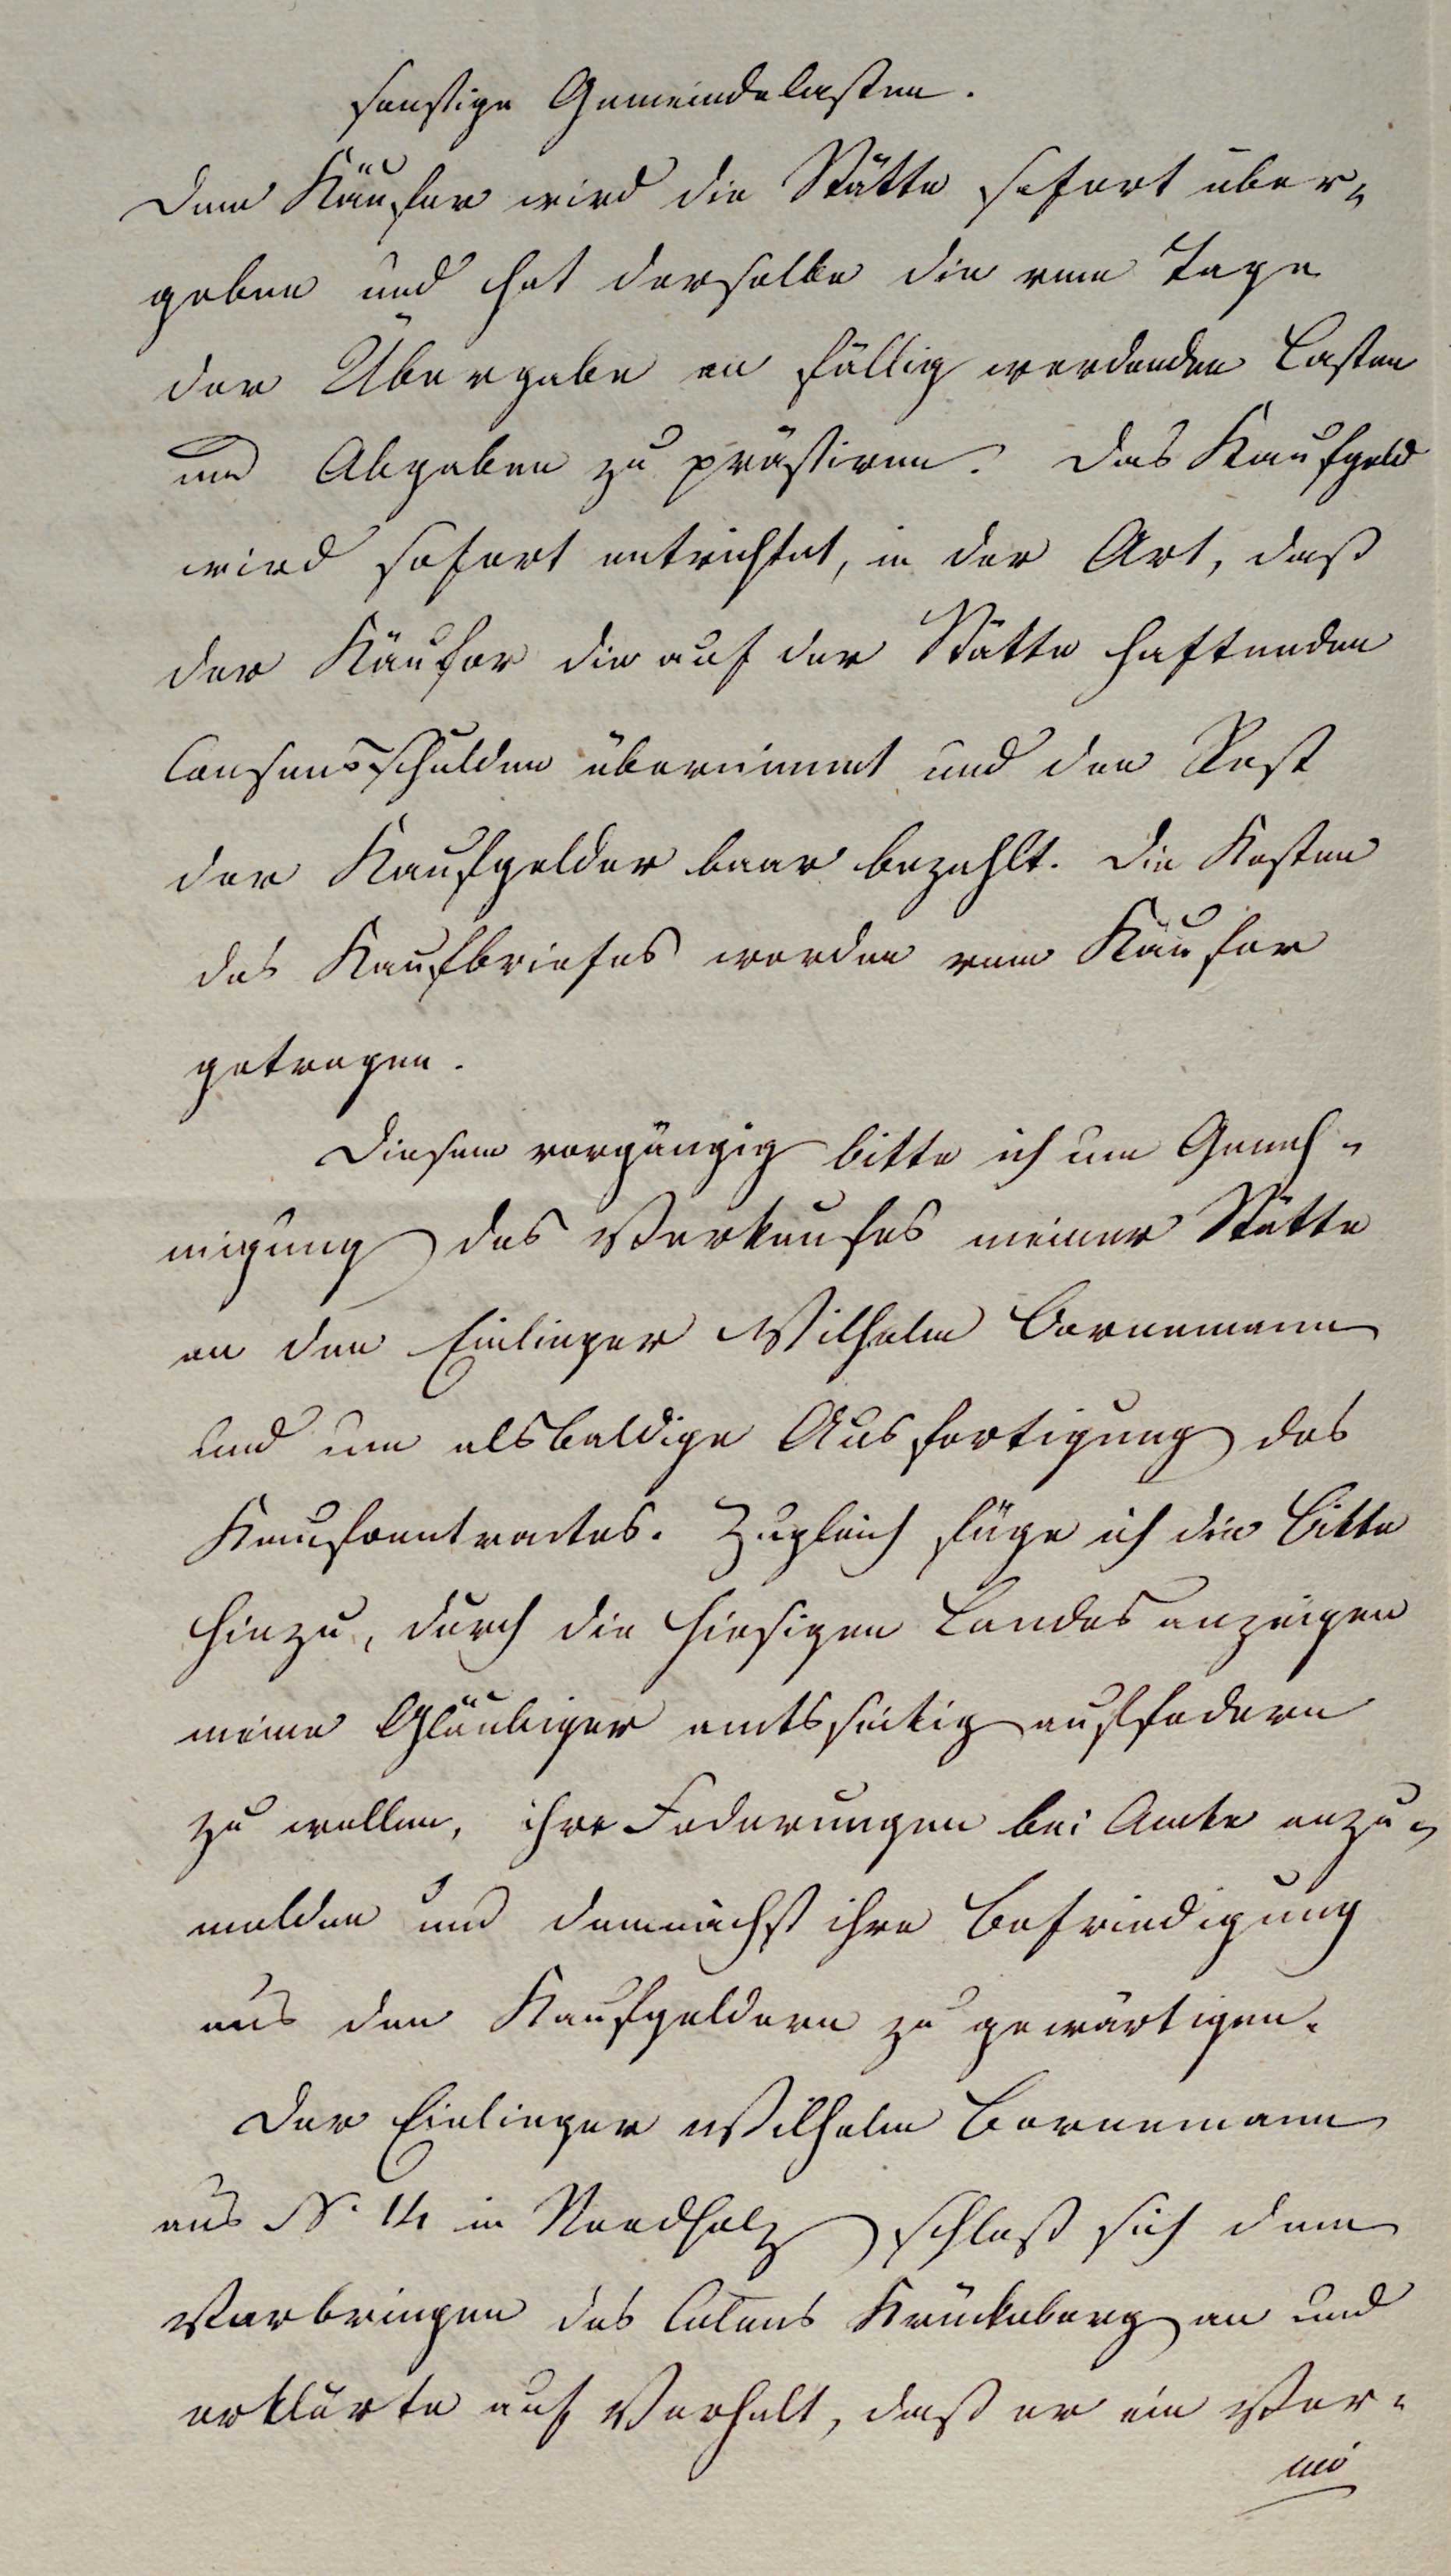 sonstige Gemeindelasten.
Dem Käufer wird die Stätte sofort über-
geben und hat derselbe die vom Tage
der Übergabe an fällig werdenden Lasten
und Abgaben zu prästiren. Das Kaufgeld
wird sofort entrichtet, in der Art, daß
der Käufer die auf der Stätte haftenden
Consensschulden übernimmt und den Rest
der Kaufgelder baar bezahlt. Die Kosten
des Kaufbriefes werden vom Käufer
getragen.
Diesem vorgängig bitte ich um Geneh-
migung des Verkaufes meiner Stätte
an den Einlieger Wilhelm Bornemann
und um alsbaldige Ausfertigung des
Kaufcontractes. Zugleich füge ich die Bitte
hinzu, durch die hiesigen Landesanzeigen
meine Gläubiger amtsseitig auffodern
zu wollen, ihre Foderungen bei Amte anzu-
melden und demnächst ihre Befriedigung
aus den Kaufgeldern zu gewärtigen.
Der Einlieger Wilhelm Bornemann
aus N. 14 in Nordholz schloß sich dem
Vorbringen des Colons Krückeberg an und
erklärte auf Vorhalt, daß er ein Ver-
mö